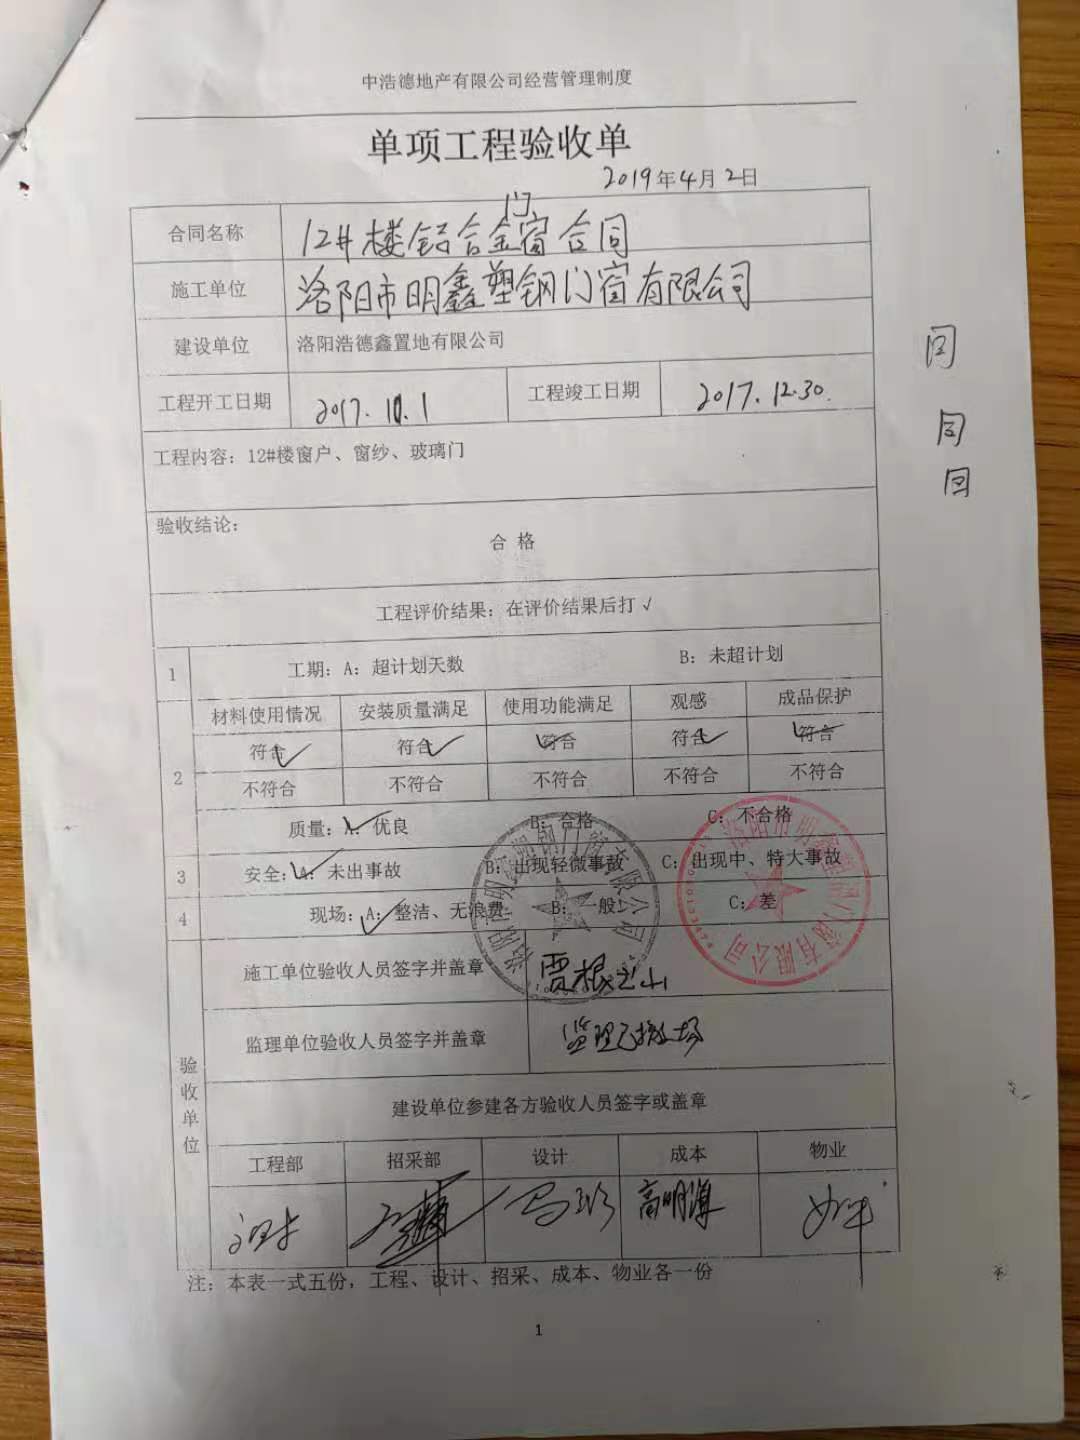 中浩德地产有限公司经营管理制度
单项工程验收单
2019年4月2日
合同名称 12#楼铝合金门窗合同
施工单位 洛阳市明鑫塑钢门窗有限公司
建设单位 洛阳浩德鑫置地有限公司
工程开工日期 2017.10.1 工程竣工日期 2017.12.30.
工程内容：12#楼窗户、窗纱、玻璃门
验收结论：
合 格
工程评价结果：在评价结果后打√
1 工期：A：超计划天数 B：未超计划
2
材料使用情况 安装质量满足 使用功能满足 观感 成品保护
符合 符合 符合 符合 符合
不符合 不符合 不符合 不符合 不符合
质量：A：优良 B：合格 C：不合格
3 安全：A：未出事故 B：出现轻微事故 C：出现中、特大事故
4 现场：A：整洁、无浪费 B：一般 C：差
洛阳市明鑫塑钢门窗有限公司
洛阳市明鑫塑钢门窗有限公司
验收单位
施工单位验收人员签字并盖章
监理单位验收人员签字并盖章 监理已撤场
建设单位参建各方验收人员签字或盖章
工程部 招采部 设计 成本 物业
注：本表一式五份，工程、设计、招采、成本、物业各一份
1
同
回